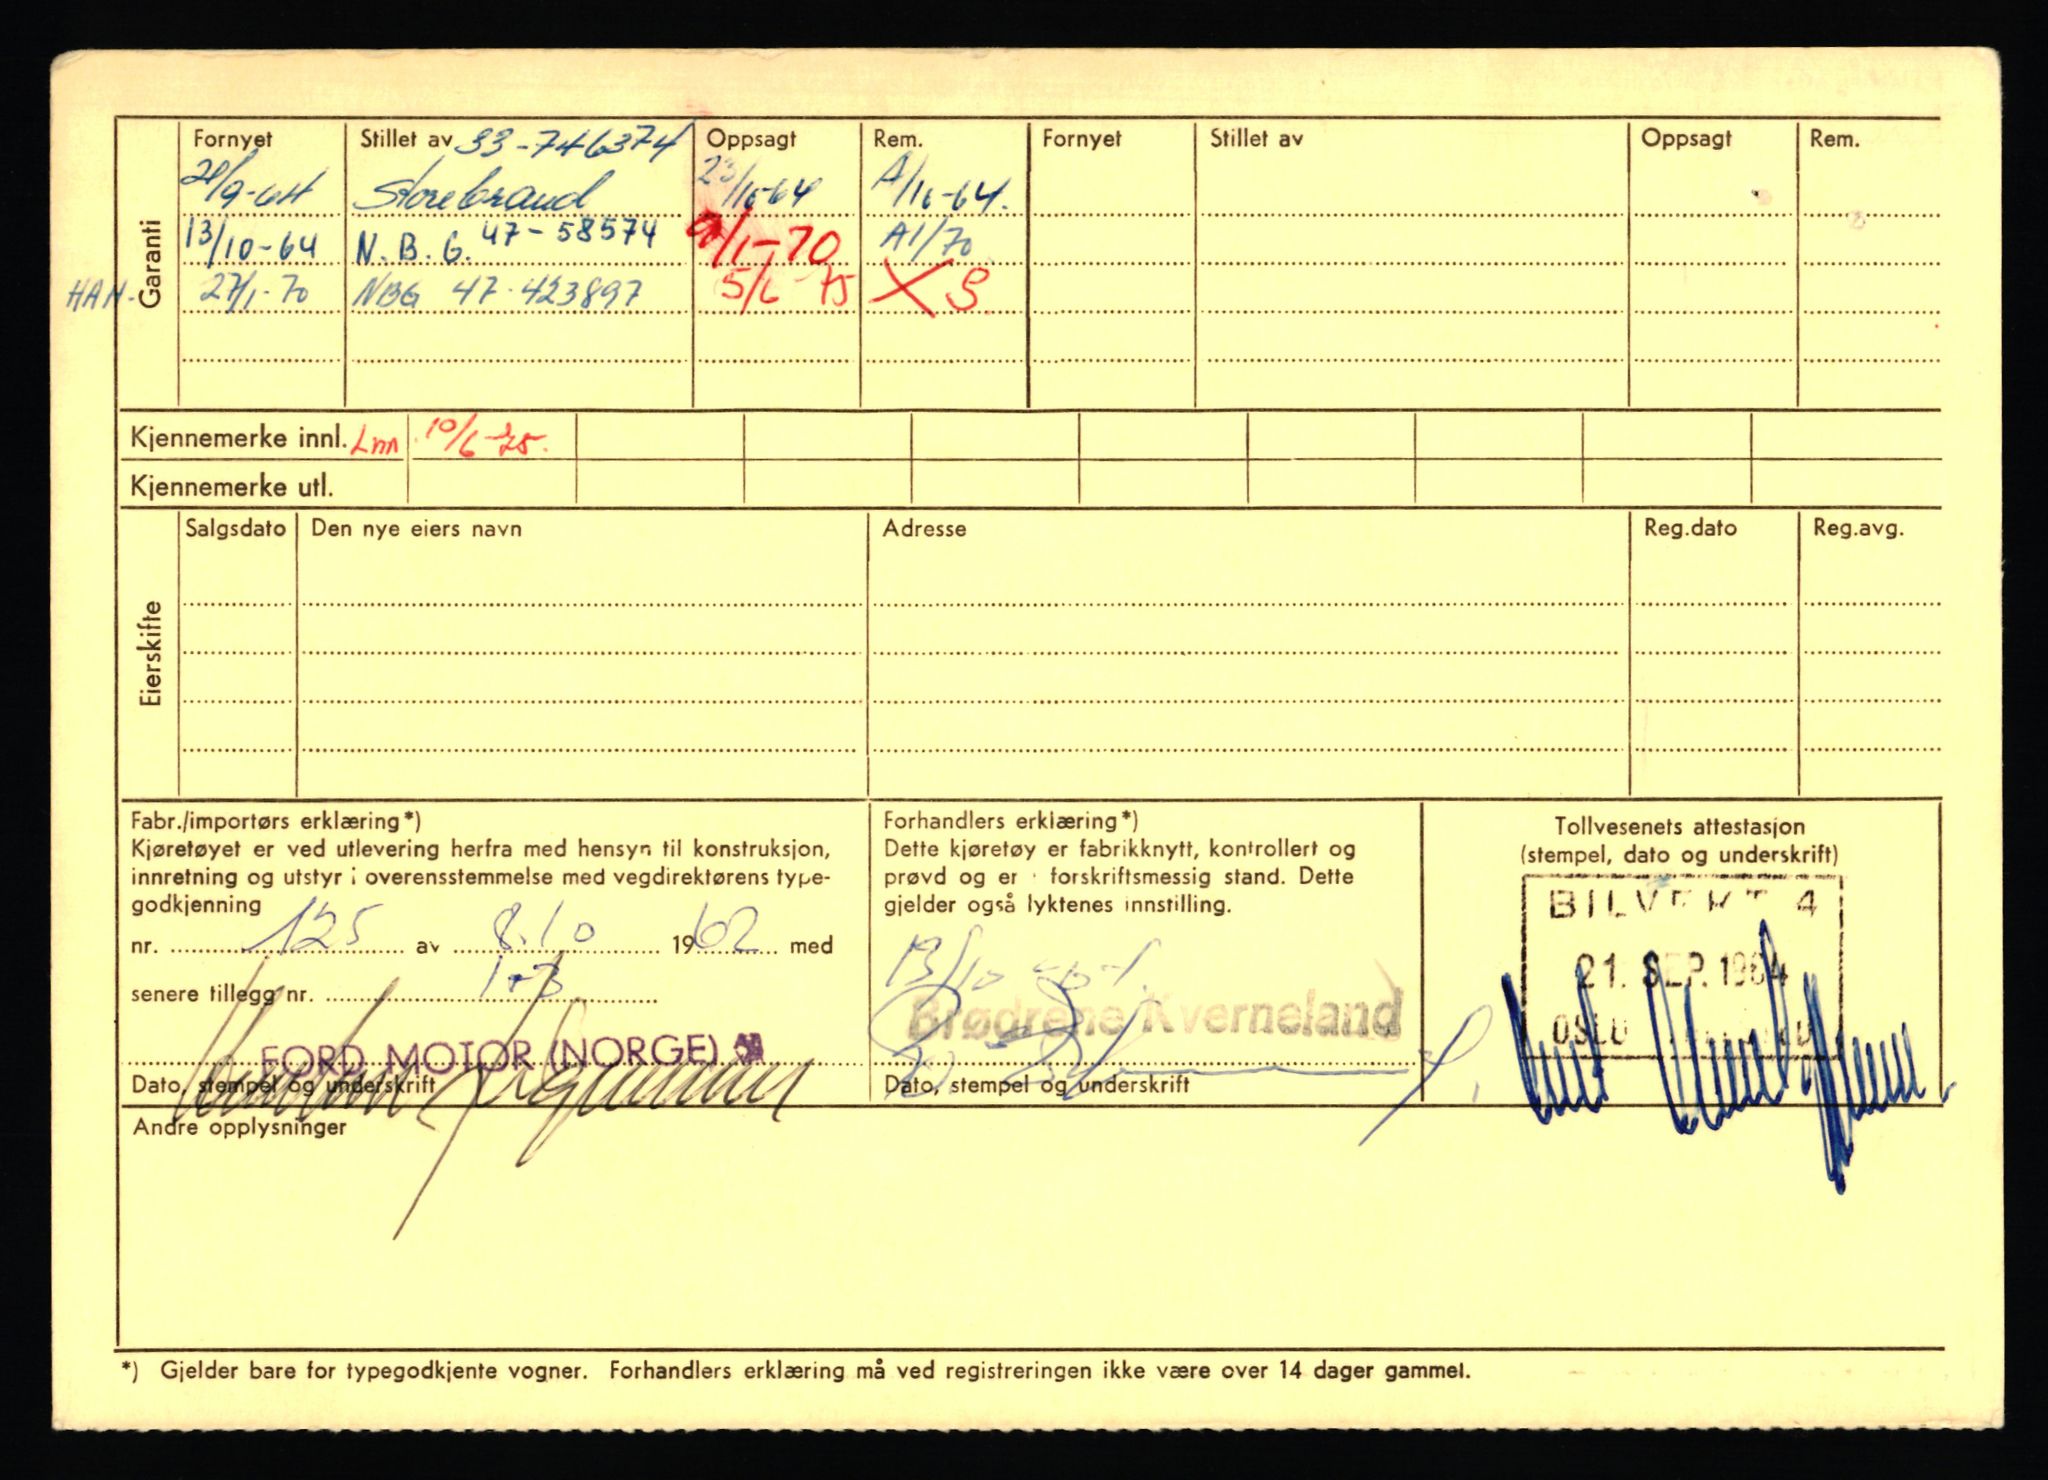 Garanti
Fornyet Stillet av 33-746374 Oppsagt Rem. Fornyet Stillet av Oppsagt Rem.
/9-64 Storebrand 23/10-64 A/10-64.
13/10-64 N.B.G. 47-58574 /1-70 A1/70
HAN- 27/1-70 NBG 47-423897 5/6 75 X S
Kjennemerke innl. Lnn 10/6-75.
Kjennemerke utl.
Eierskifte
Salgsdato Den nye eiers navn Adresse Reg.dato Reg.avg.
Fabr./importørs erklæring*)
Kjøretøyet er ved utlevering herfra med hensyn til konstruksjon,
innretning og utstyr i overensstemmelse med vegdirektørens type-
godkjenning
nr. 125 av 8.10 1962 med
senere tillegg nr. 1+3
FORD MOTOR (NORGE) AB
Dato, stempel og underskrift
Forhandlers erklæring*)
Dette kjøretøy er fabrikknytt, kontrollert og
prøvd og er i forskriftsmessig stand. Dette
gjelder også lyktenes innstilling.
13/10
Brødrene Kverneland
Dato, stempel og underskrift
Tollvesenets attestasjon
(stempel, dato og underskrift)
BILVEKT 4
21. SEP. 1964
OSLO
Andre opplysninger
*) Gjelder bare for typegodkjente vogner. Forhandlers erklæring må ved registreringen ikke være over 14 dager gammel.